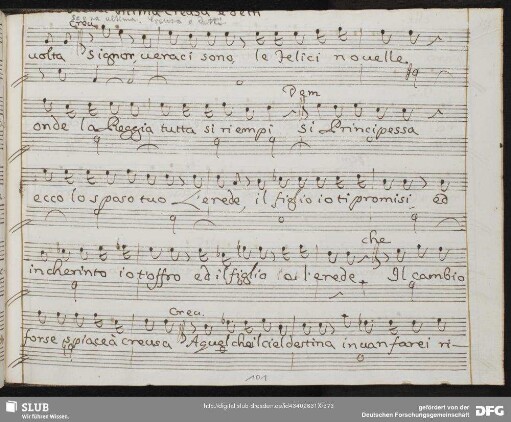 Scena ultima. Creusa e detti
Creu.
uolta Signor, ueraci sono, le felici nouelle,
Dem
onde la Reggia tutta si riempi Si Principessa
ecco lo sposo tuo L'erede, il figlio io ti promisi, ed
che
in cherinto io t'offro ed il figlio e l'erede. Il cambio
Creu.
forse spiace a creusa? A quel che il ciel destina in uan farei ri-
101
SLUB
Wir führen Wissen.
gefördert von der
Deutschen Forschungsgemeinschaft
DFG